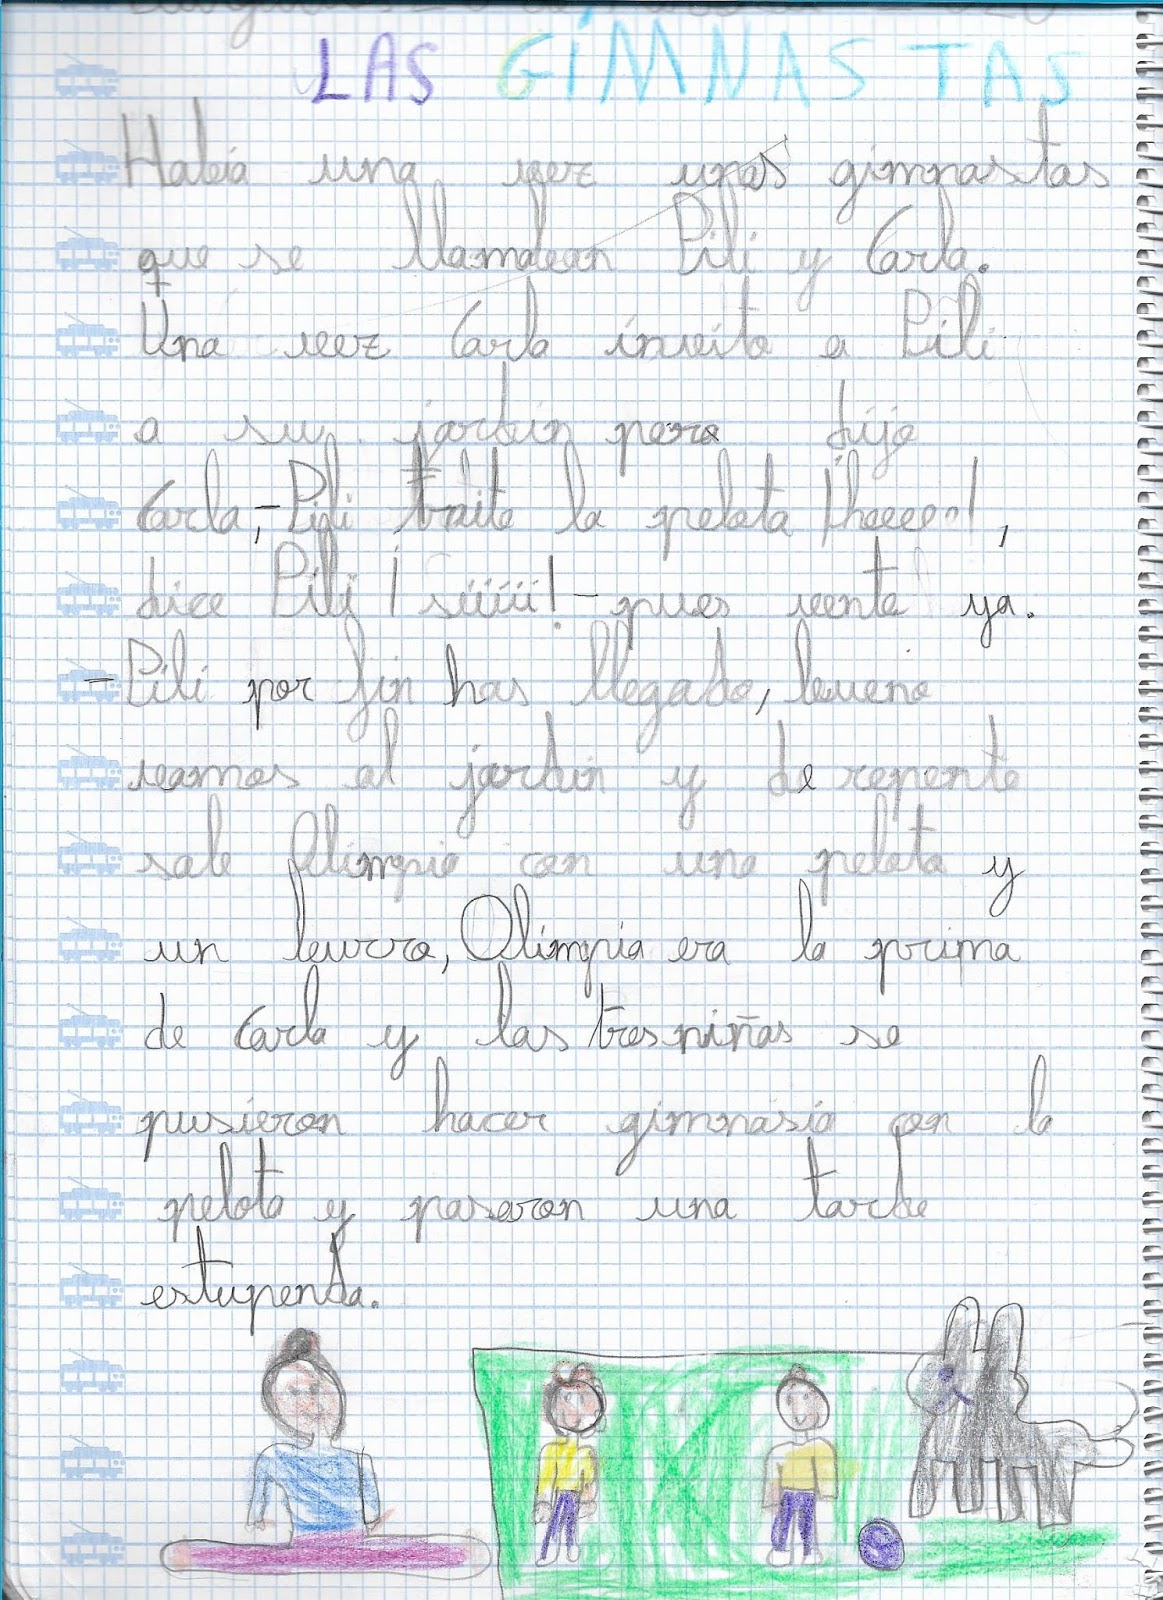 LAS GIMNASTAS
Había una vez unas gimnastas
que se llamaban Pili y Carla.
Una vez Carla invito a Pili
a su jardín pero dijo
Carla,-Pili traite la pelota ¡heeee!,
dice Pili ¡siiiii!-pues vente ya.
-Pili por fin has llegado, bueno
vamos al jardin y de repente
sale Olimpia con una pelota y
un burro, Olimpia era la prima
de Carla y las tres niñas se
pusieron hacer gimnasia con la
pelota y pasaron una tarde
estupenda.